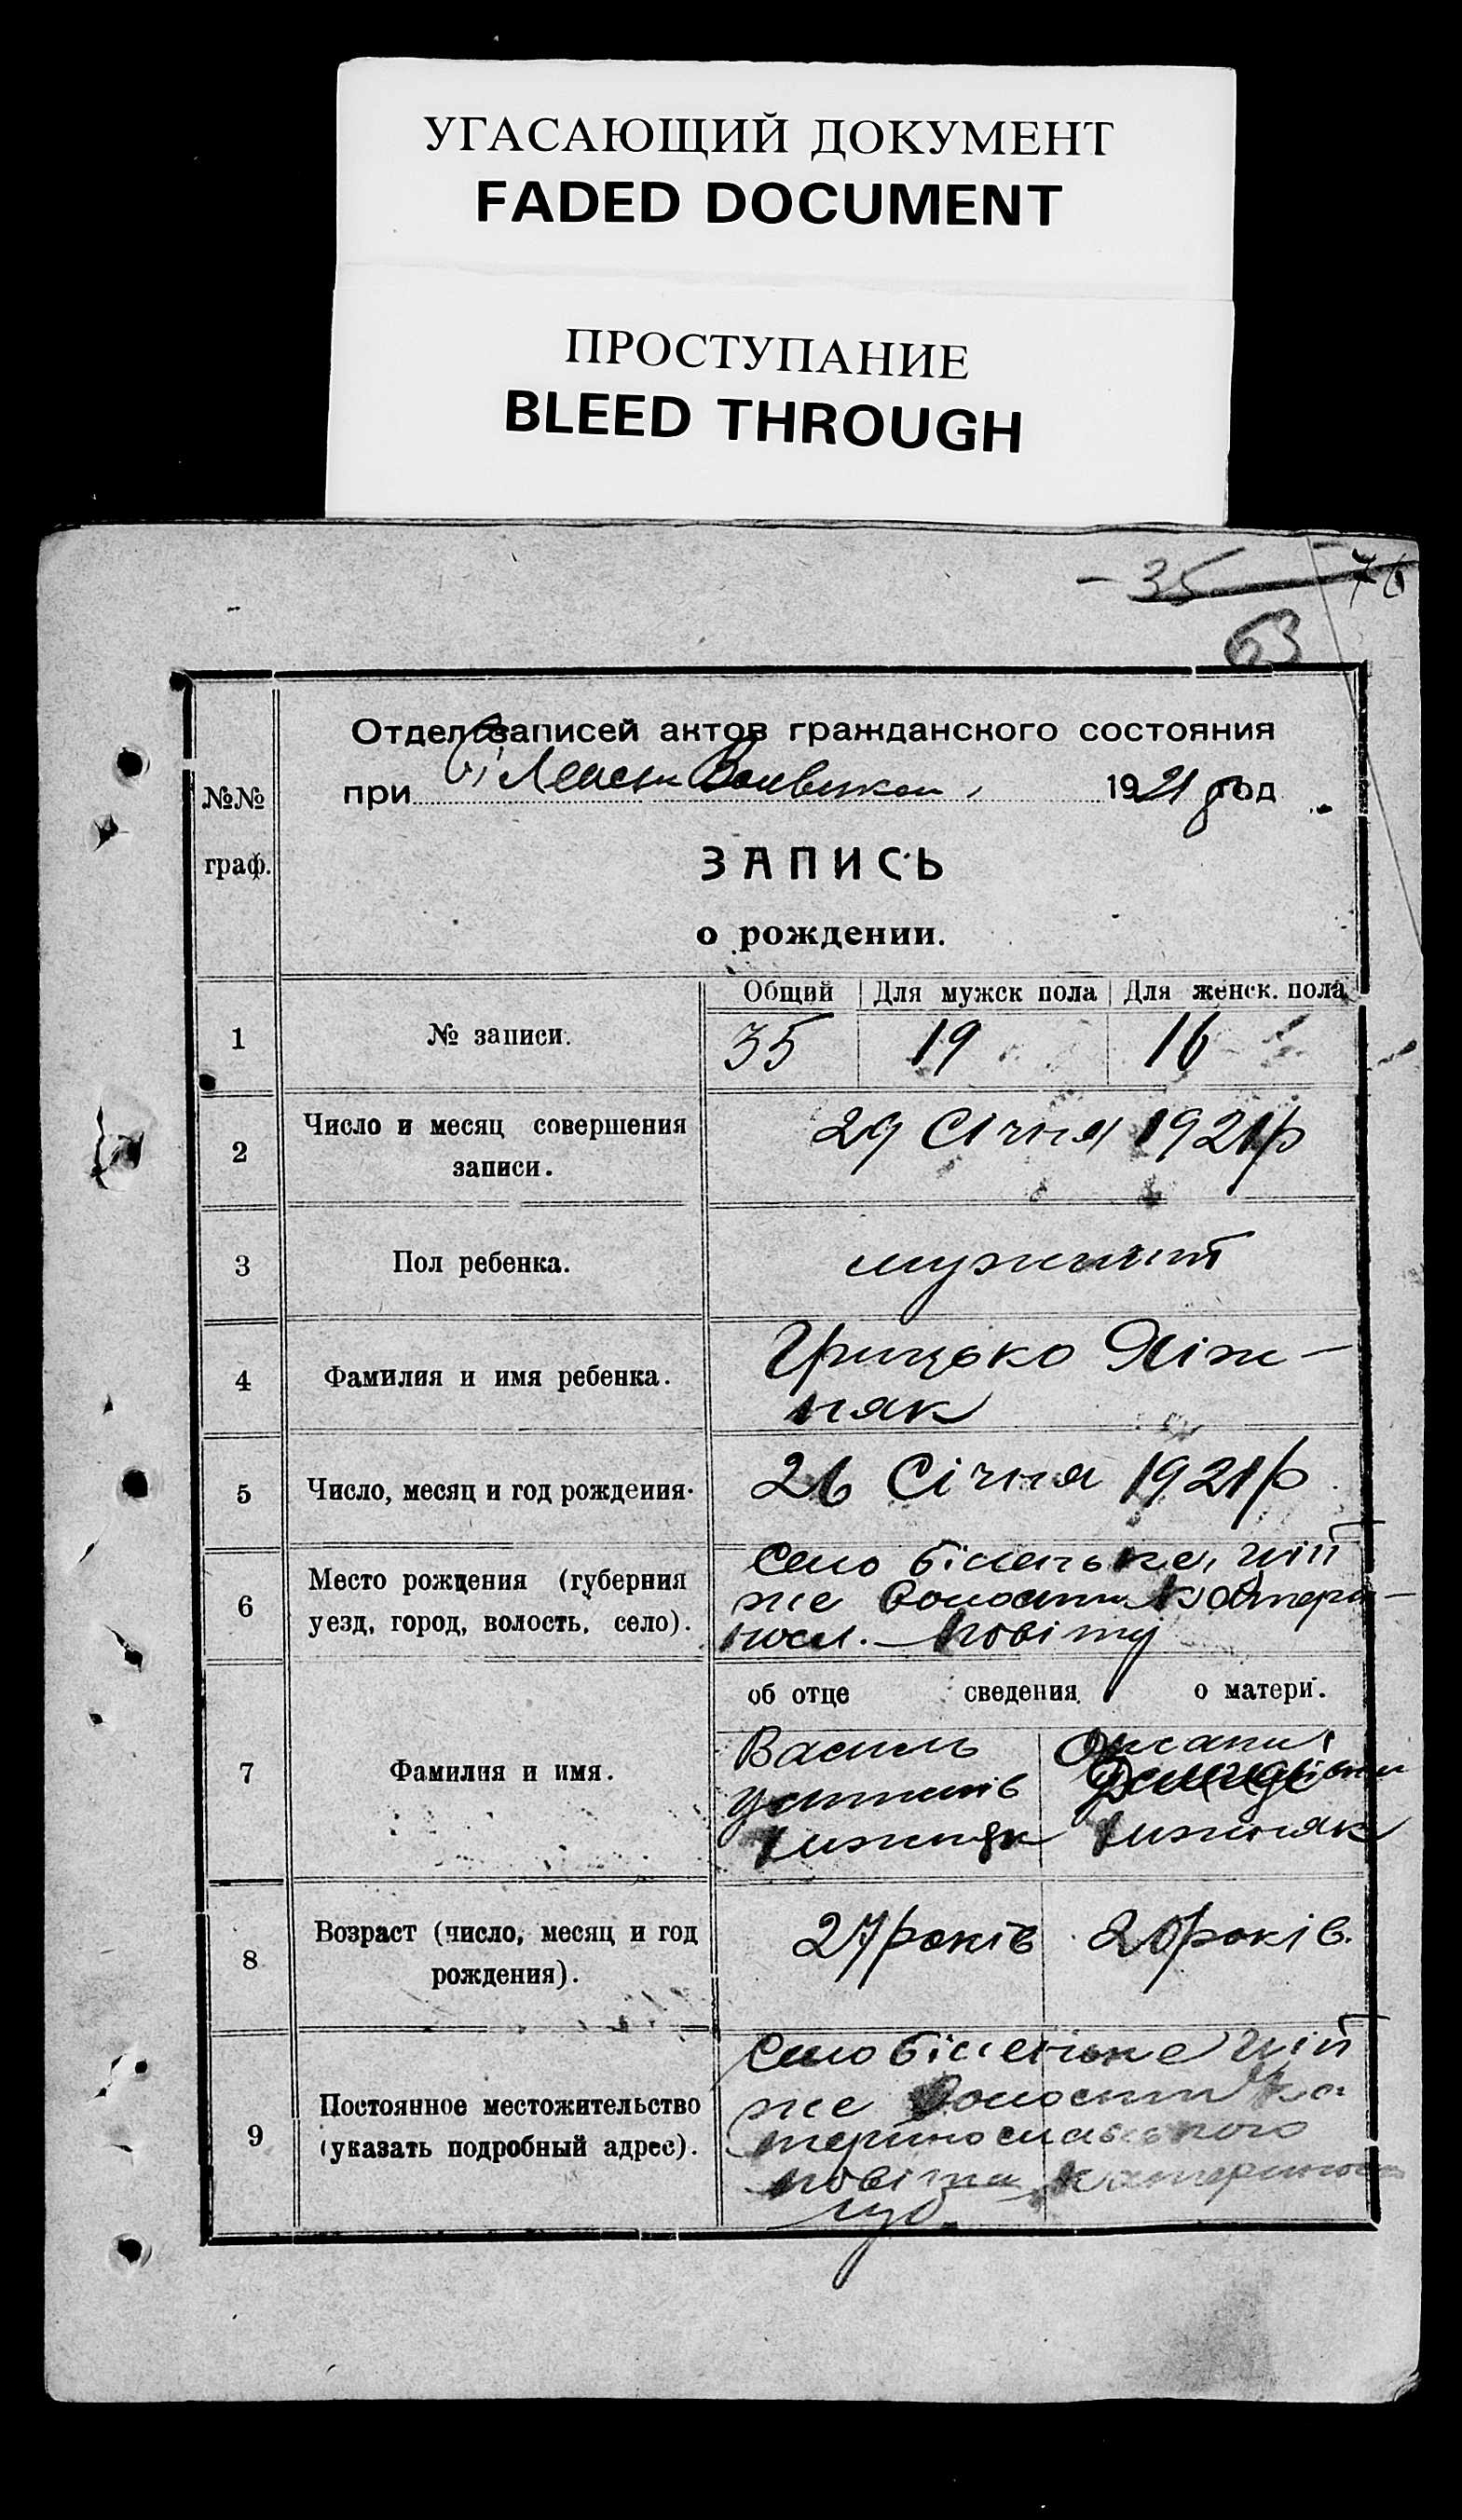 УГАСАЮЩИЙ ДОКУМЕНТ
FADED DOCUMENT
ПРОСТУПАНИЕ
BLEED THROUGH
35 76
63
Отдел записей актов гражданского состояния
при 1921 год
№№
граф.
ЗАПИСЬ
о рождении.
Общий Для мужск пола Для женск. пола
1 № записи. 35 19 16
2 Число и месяц совершения
записи.
29 Січня 1921 р
3 Пол ребенка.
4 Фамилия и имя ребенка.
Грицько
няк
5 Число, месяц и год рождения. 26 Січня 1921 р
6 Место рождения (губерния
уезд, город, волость, село).
Село Біленьке, цій
же Волости Катери-
носл. Повіту
об отце сведения о матери.
7 Фамилия и имя.
Василь
Оксана
8 Возраст (число, месяц и год
рождения).
27 років 20 років.
9 Постоянное местожительство
(указать подробный адрес).
Село Біленьке цій
же Волости Ка-
теринославського
повіта Катеринос
губ.